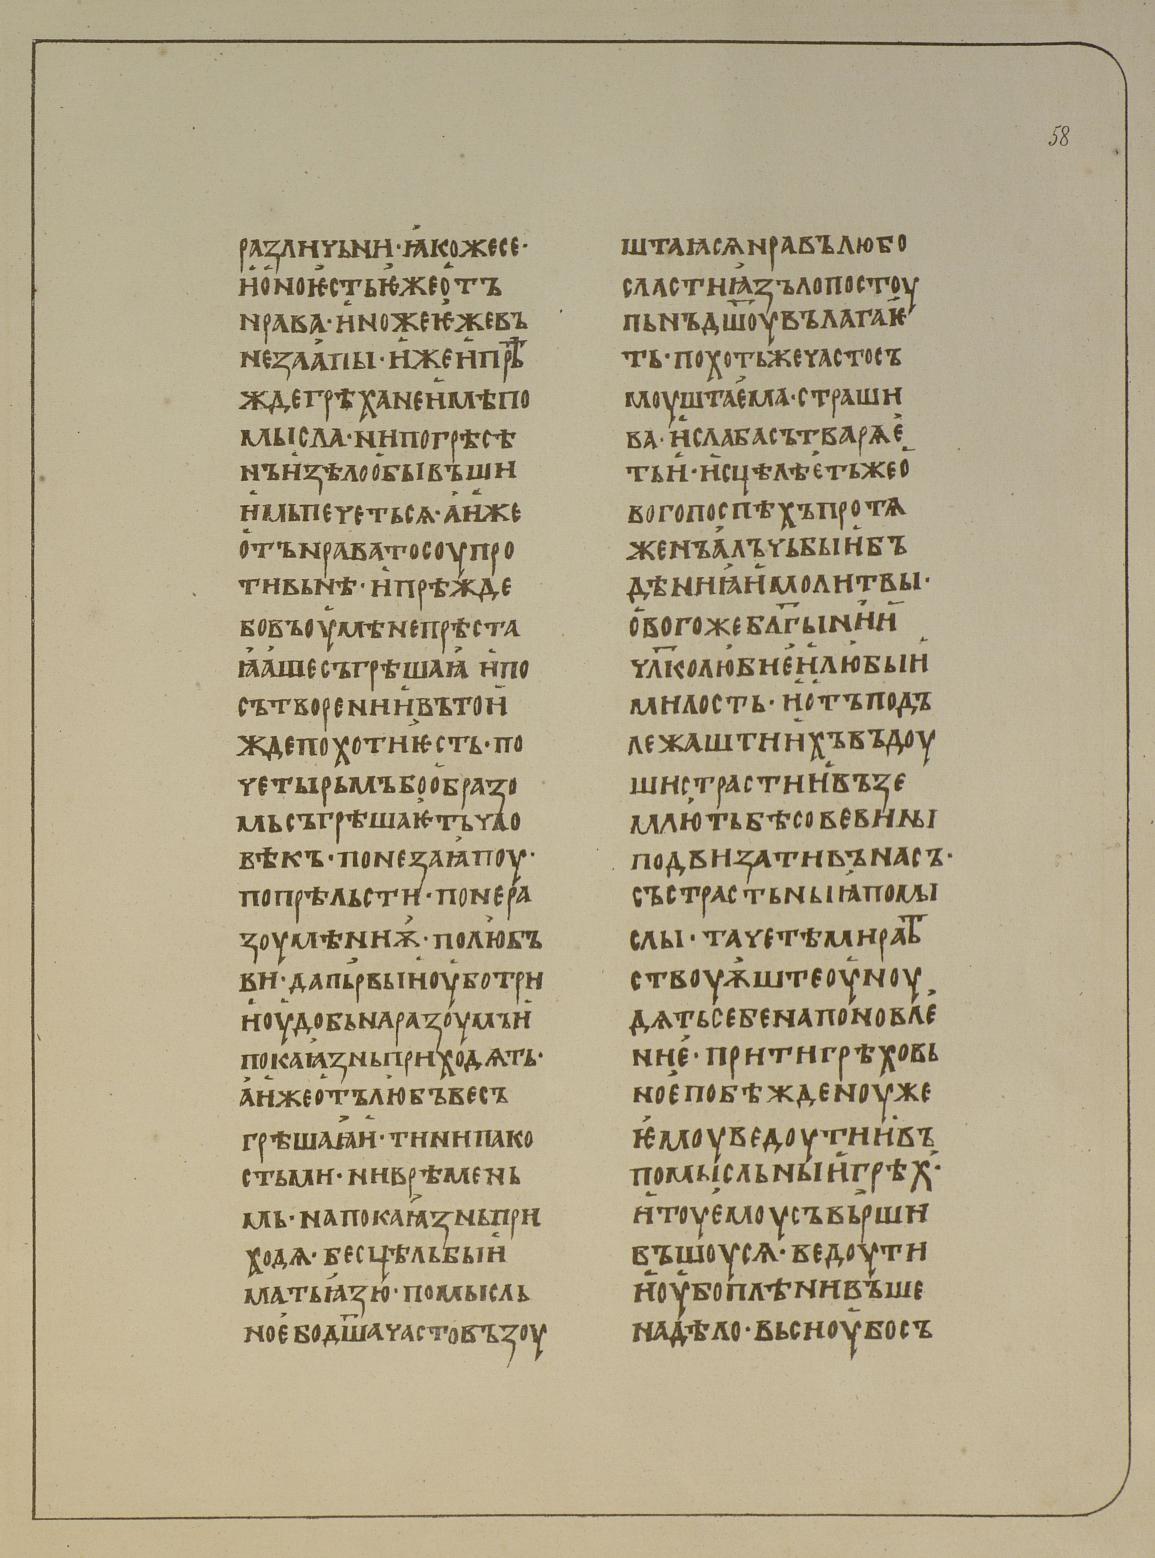 58
разлиуьни·ꙗкожесе·
инонѥстьѥжеотъ
нрава·иножеѥжевъ
незаапы·ижеипрѣ
ждегрѣханеимѣпо
мысла·нипогрѣсѣ
нъизѣлообывъши
имьпеуеться·аиже
отънраватосоупро
тивьнѣ·ипрѣжде
бовъоумѣнепрѣста
ꙗашесъгрѣшаꙗ ипо
сътворениивътои
ждепохотиѥсть·по
уетырьмъбообразо
мьсъгрѣшаѥтьуло
вѣкъ·понезаꙗпоу·
попрѣльсти·понера
зоумѣниѫ·полюбъ
ви·дапьрвыиоуботри
иоудобьнаразоумъи
покаꙗзньприходѧть·
аижеотълюбъвесъ
грѣшаꙗи·тининако
стьми·ниврѣмень
мь·напокаꙗзньпри
ходѧ·бесцѣльбыи
матыꙗзю·помысль
ноебодшауастовъзоу
штаꙗсѧнравълюбо
сластиꙗзълопостоу
пьнъдшоувълагаѥ
ть·похотьжеуастосъ
моуштаема·страши
ва·ислабасътварѧе
тьи·исцѣлѣетьжео
вогопоспѣхъпротѧ
женъалъуьбыибъ
дѣниꙗимолитвы·
овогожеблгынии
улколюбиеилюбыи
милость·иотъподъ
лежаштиихъвъдоу
шистрастиивъзе
млютьбѣсовевины
подвизативънасъ·
състрастьныꙗпомы
слы·тауетѣмиравь
ствоуѫштеоуноу
дѧтьсебенапоновле
ние·притигрѣховь
ноепобѣжденоуже
ѥмоуведоутиивъ
помысльныигрѣх·
итоуемоусъвьрши
въшоусѧ·ведоути
иоубоплѣнивъше
надѣло·вьсиоубосъ